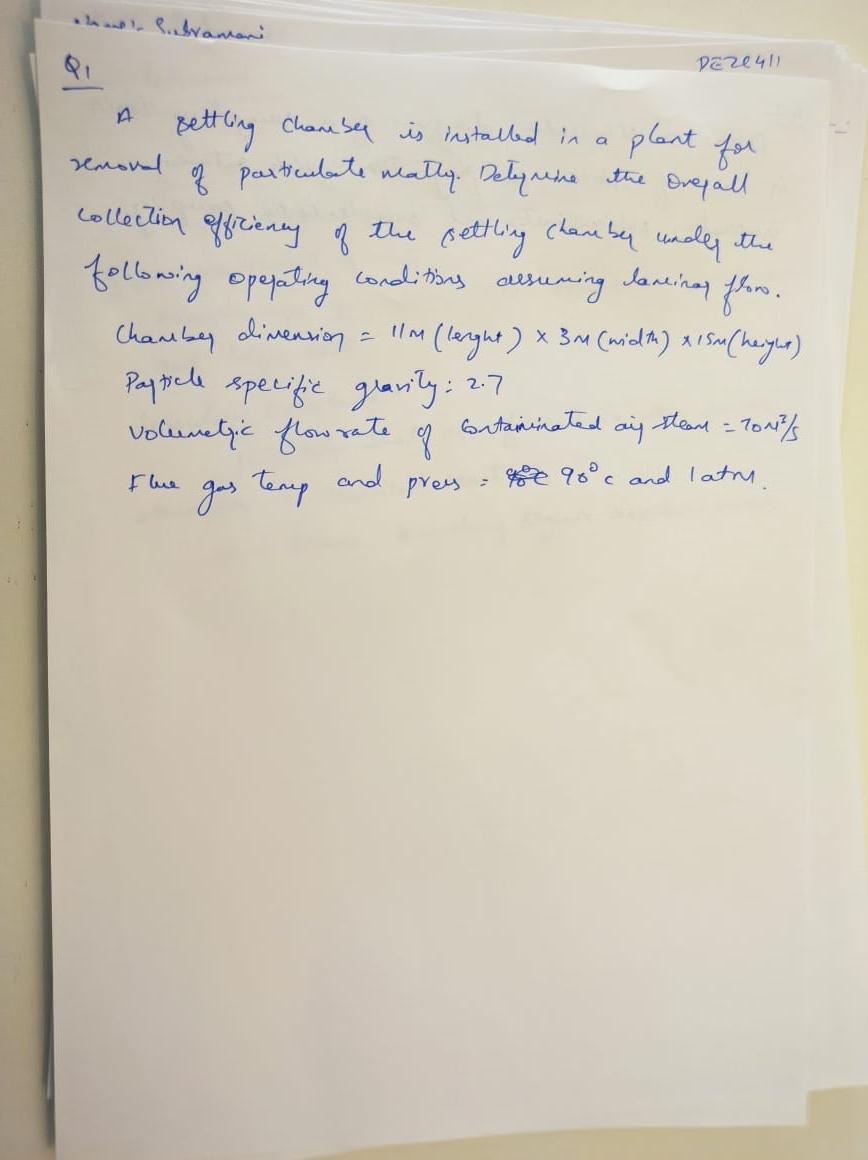 DE20411
Q1
A settling chamber is installed in a plant for
removal of particulate matter. Determine the overall
collection efficiency of the settling chamber under the
following operating conditions assuming laminar flow.
Chamber dimension = 11m (lenght) x 3m (width) x 15m (height)
Particle specific gravity: 2.7
Volumetric flow rate of contaminated air steam = 70 m³/s
Flue gas temp and press = 90°c and 1 atm.